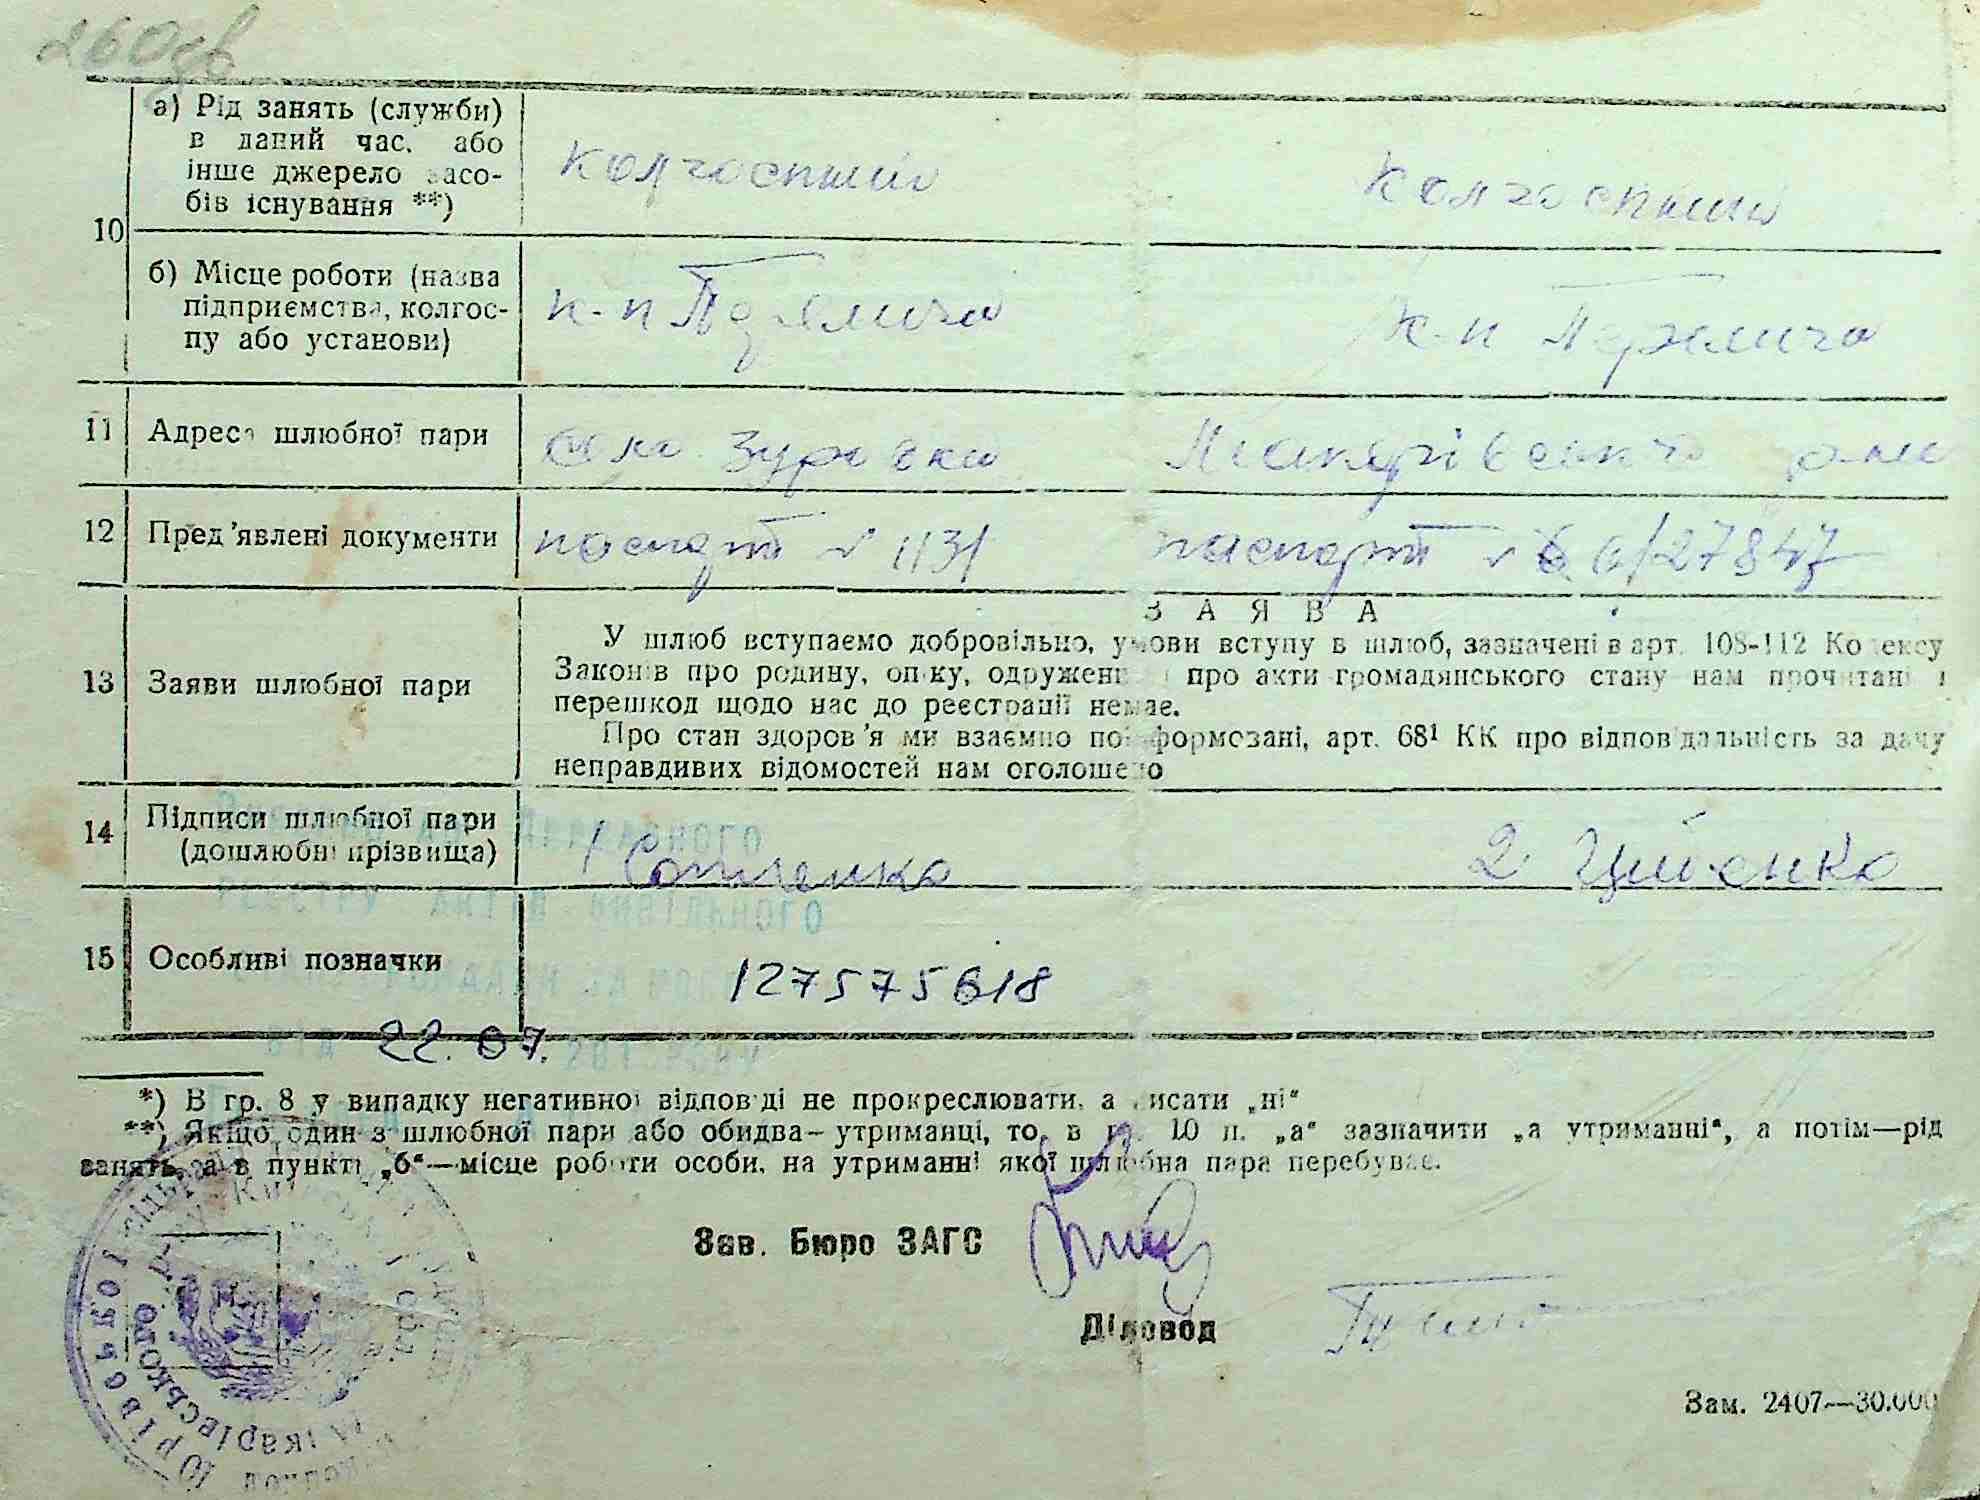 260зв
а) Рід занять (служби)
в даний час, або
інше джерело засо-
бів існування **)
колгоспник
колгоспник
10
б) Місце роботи (назва
підприємства, колгос-
пу або установи)
к-п
к-п
11 Адреса шлюбної пари
село Зурівка Макарівського р-ну
12 Пред'явлені документи
паспорт № 1131 паспорт № 27847
З А Я В А
У шлюб вступаємо добровільно, умови вступу в шлюб, зазначені в арт. 108-112 Кодексу
Законів про родину, опіку, одруження і про акти громадянського стану нам прочитані і
13 Заяви шлюбної пари
перешкод щодо нас до реєстрації немає.
Про стан здоров'я ми взаємно поінформовані, арт. 68¹ КК про відповідальність за дачу
неправдивих відомостей нам оголошено
14 Підписи шлюбної пари
(дошлюбні прізвища)
1 2
15 Особливі позначки
127575618
22.07.
*) В гр. 8 у випадку негативної відповіді не прокреслювати, а писати „ні“
**) Якщо один з шлюбної пари або обидва— утриманці, то, в гр. 10 п. „а“ зазначити „а утриманні“, а потім—рід
занять, а в пункті „б“—місце роботи особи, на утриманні якої шлюбна пара перебуває.
Зав. Бюро ЗАГС
Діловод
Зам. 2407—30.000